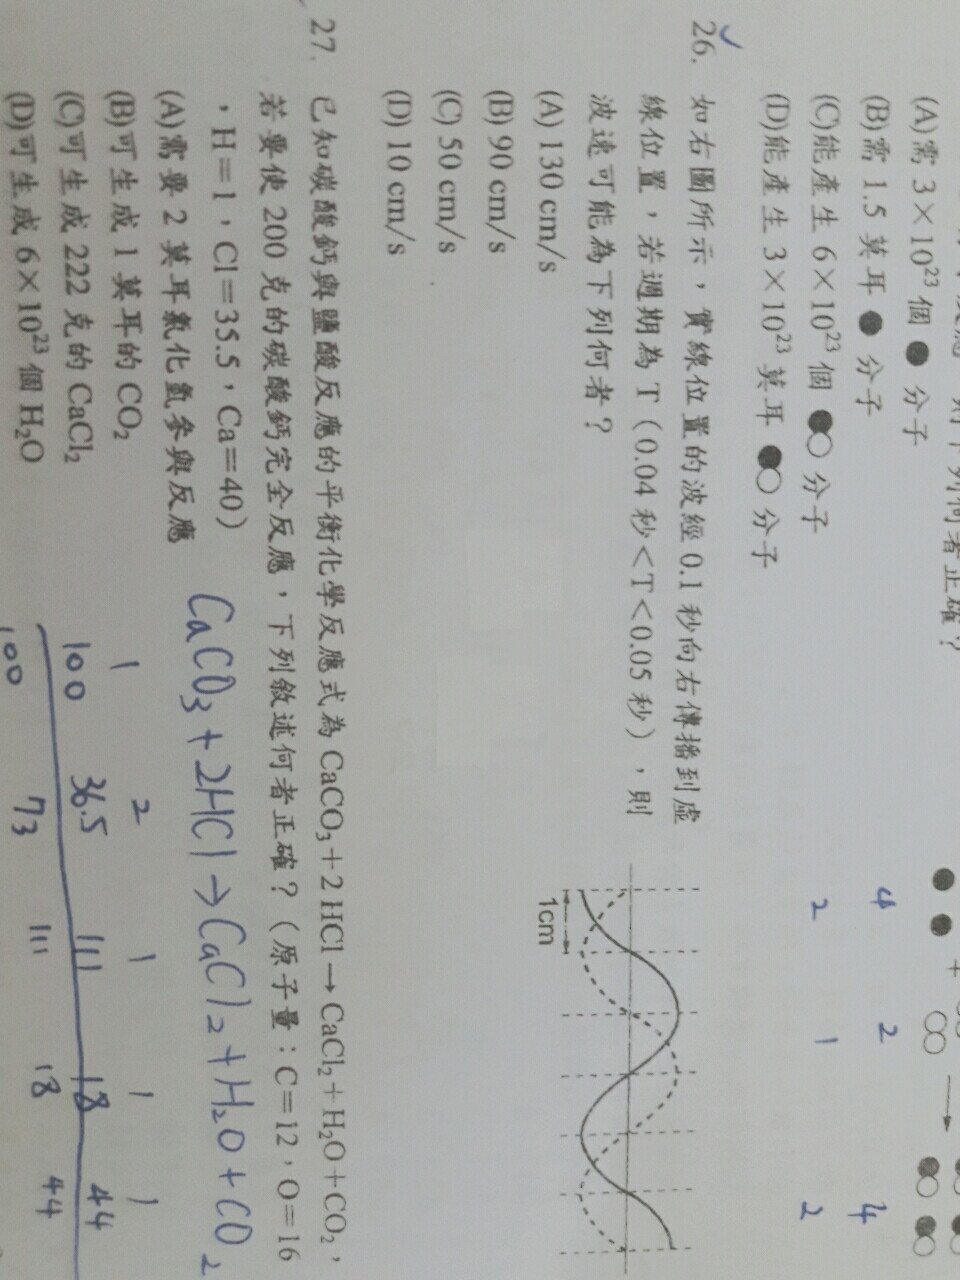 (A)需 3×10²³ 個 ● 分子
(B)需 1.5 莫耳 ● 分子
(C)能產生 6×10²³ 個 ●○ 分子
(D)能產生 3×10²³ 莫耳 ●○ 分子
4 2 4
2 1 2
26. 如右圖所示，實線位置的波經 0.1 秒向右傳播到虛
線位置，若週期為 T（0.04 秒<T<0.05 秒），則
波速可能為下列何者？
(A) 130 cm/s
(B) 90 cm/s
(C) 50 cm/s
(D) 10 cm/s
1cm
27. 已知碳酸鈣與鹽酸反應的平衡化學反應式為 CaCO₃+2 HCl→CaCl₂+H₂O+CO₂，
若要使 200 克的碳酸鈣完全反應，下列敘述何者正確？（原子量：C=12，O=16
，H=1，Cl=35.5，Ca=40）
(A)需要 2 莫耳氯化氫參與反應
(B)可生成 1 莫耳的 CO₂
(C)可生成 222 克的 CaCl₂
(D)可生成 6×10²³ 個 H₂O
CaCO₃+2HCl→CaCl₂+H₂O+CO₂
1 2 1 1 1
100 36.5 111 18 44
100 73 111 18 44